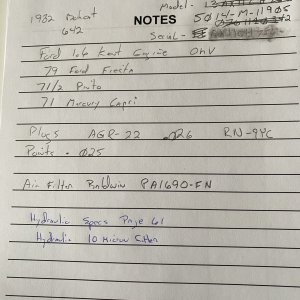 Model -
1982 Bobcat NOTES 5014-M-11905
642
Serial -
Ford 1.6 Kent Engine OHV
79 Ford Fiesta
71 1/2 Pinto
71 Mercury Capri
Plugs AGR-22 .026 RN-9YC
Points .025
Air Filter Baldwin PA1690-FN
Hydraulic Specs Page 61
Hydraulic 10 Micron Filter